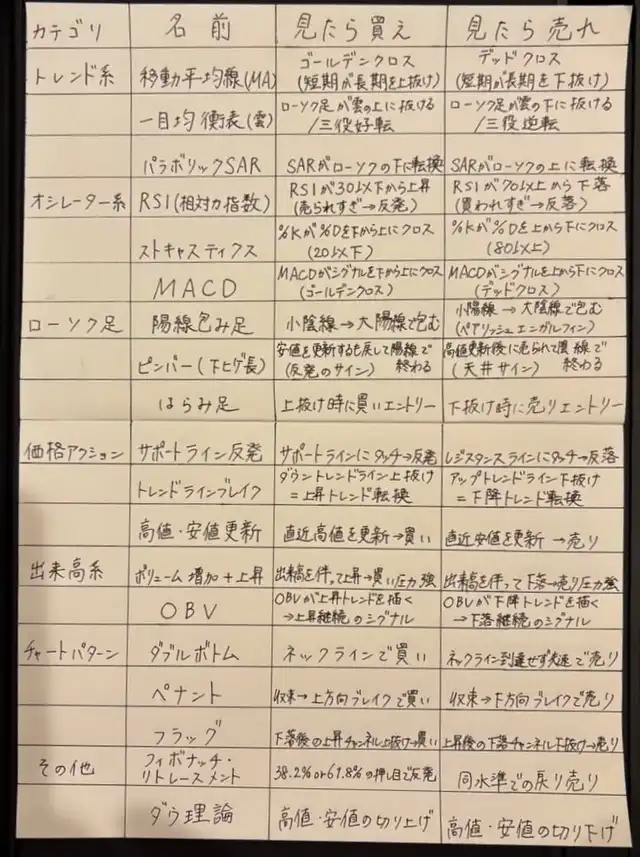 カテゴリ 名前 見たら買え 見たら売れ
トレンド系 移動平均線(MA) ゴールデンクロス(短期が長期を上抜け) デッドクロス(短期が長期を下抜け)
一目均衡表(雲) ローソク足が雲の上に抜ける/三役好転 ローソク足が雲の下に抜ける/三役逆転
パラボリックSAR SARがローソクの下に転換 SARがローソクの上に転換
オシレーター系 RSI(相対力指数) RSIが30以下から上昇(売られすぎ→反発) RSIが70以上から下落(買われすぎ→反落)
ストキャスティクス %Kが%Dを下から上にクロス(20以下) %Kが%Dを上から下にクロス(80以上)
MACD MACDがシグナルを下から上にクロス(ゴールデンクロス) MACDがシグナルを上から下にクロス(デッドクロス)
ローソク足 陽線包み足 小陰線→大陽線で包む 小陽線→大陰線で包む(ベアリッシュエンガルフィン)
ピンバー(下ヒゲ長) 安値を更新するも戻して陽線で終わる(反発のサイン) 高値更新後に売られて陰線で終わる(天井サイン)
はらみ足 上抜け時に買いエントリー 下抜け時に売りエントリー
価格アクション サポートライン反発 サポートラインにタッチ→反発 レジスタンスラインにタッチ→反落
トレンドラインブレイク ダウントレンドライン上抜け=上昇トレンド転換 アップトレンドライン下抜け=下降トレンド転換
高値・安値更新 直近高値を更新→買い 直近安値を更新→売り
出来高系 ボリューム増加+上昇 出来高を伴って上昇→買い圧力強 出来高を伴って下落→売り圧力強
OBV OBVが上昇トレンドを描く→上昇継続のシグナル OBVが下降トレンドを描く→下落継続のシグナル
チャートパターン ダブルボトム ネックラインで買い ネックライン到達せず失速で売り
ペナント 収束→上方向ブレイクで買い 収束→下方向ブレイクで売り
フラッグ 下落後の上昇チャンネル上抜け→買い 上昇後の下落チャンネル下抜け→売り
その他 フィボナッチ・リトレースメント 38.2%or61.8%の押し目で反発 同水準での戻り売り
ダウ理論 高値・安値の切り上げ 高値・安値の切り下げ